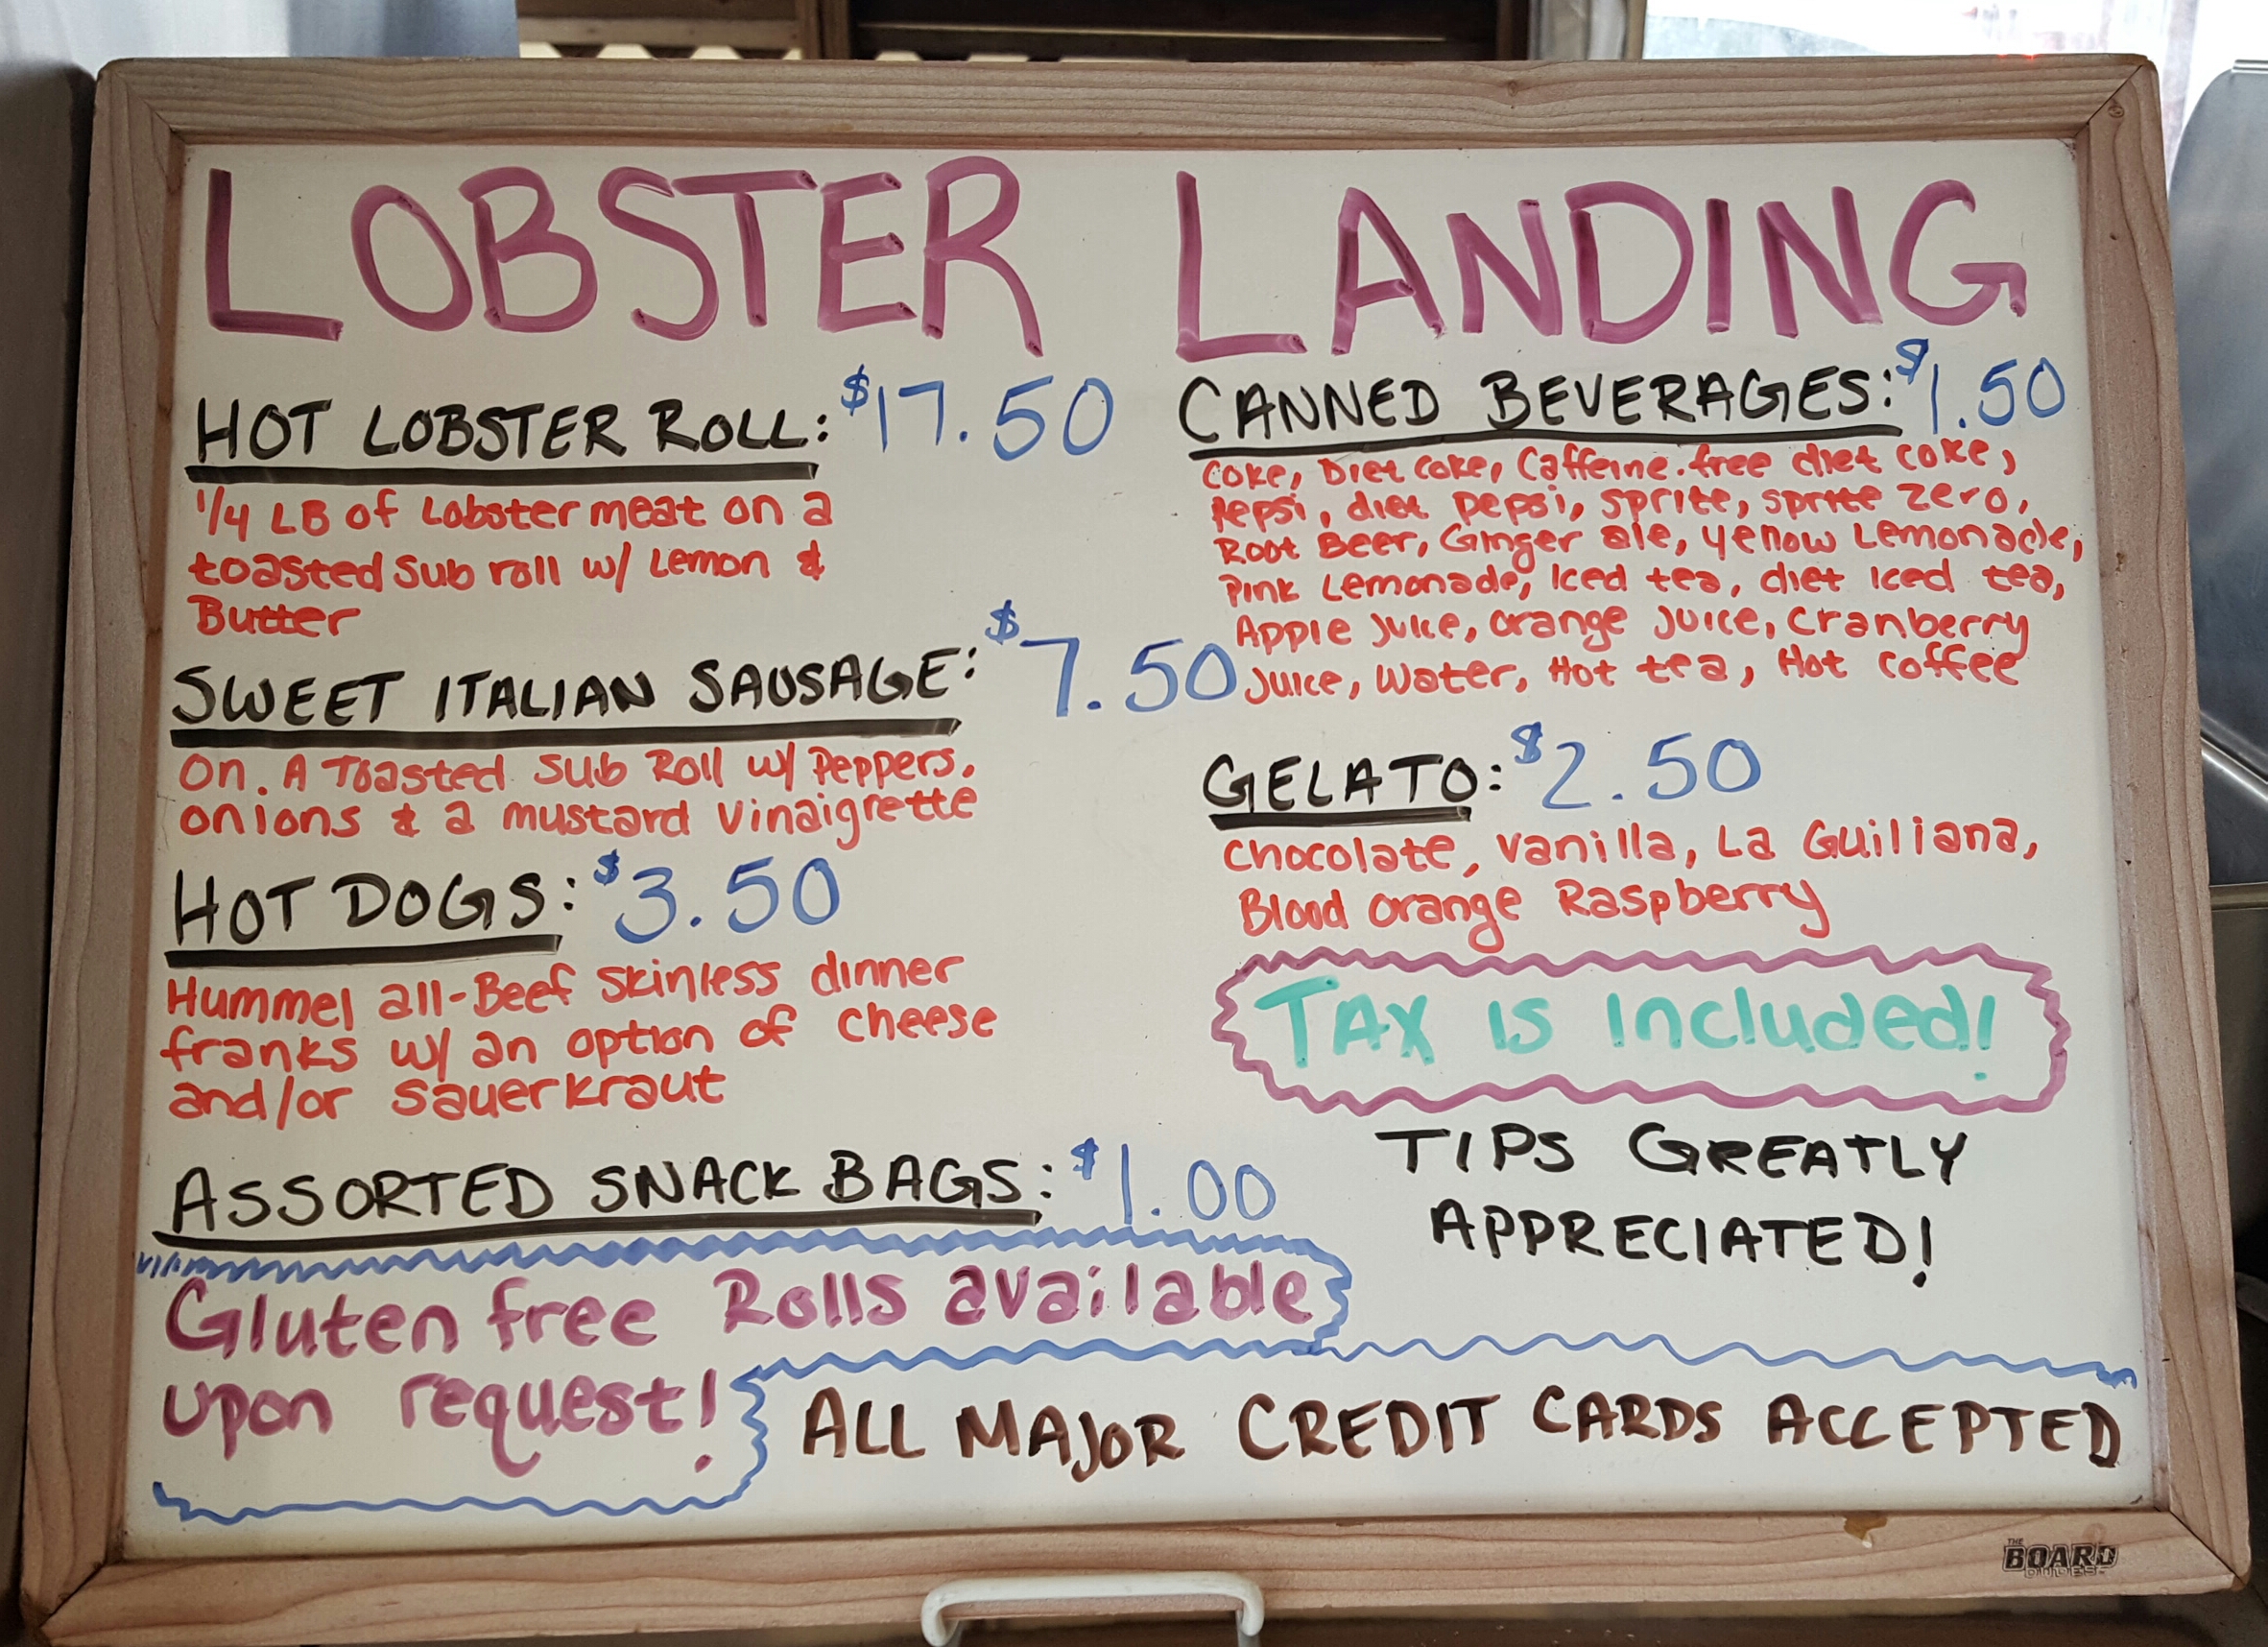 LOBSTER LANDING
HOT LOBSTER ROLL: $17.50
1/4 LB of Lobster meat on a
toasted Sub roll w/ Lemon &
Butter
SWEET ITALIAN SAUSAGE: $7.50
On. A Toasted Sub Roll w/ Peppers,
onions & a mustard Vinaigrette
HOT DOGS: $3.50
Hummel all-Beef Skinless dinner
franks w/ an option of cheese
and/or Sauerkraut
ASSORTED SNACK BAGS: $1.00
Gluten free Rolls available
upon request!
CANNED BEVERAGES: $1.50
Coke, Diet Coke, Caffeine.free diet coke,
Pepsi, diet Pepsi, Sprite, Sprite Zero,
Root Beer, Ginger ale, yellow Lemonade,
Pink Lemonade, Iced tea, diet Iced tea,
Apple Juice, orange Juice, Cranberry
Juice, Water, Hot tea, Hot Coffee
GELATO: $2.50
Chocolate, Vanilla, La Guiliana,
Blood Orange Raspberry
TAX IS Included!
TIPS GREATLY
APPRECIATED!
ALL MAJOR CREDIT CARDS ACCEPTED
THE
BOARD
DUDES